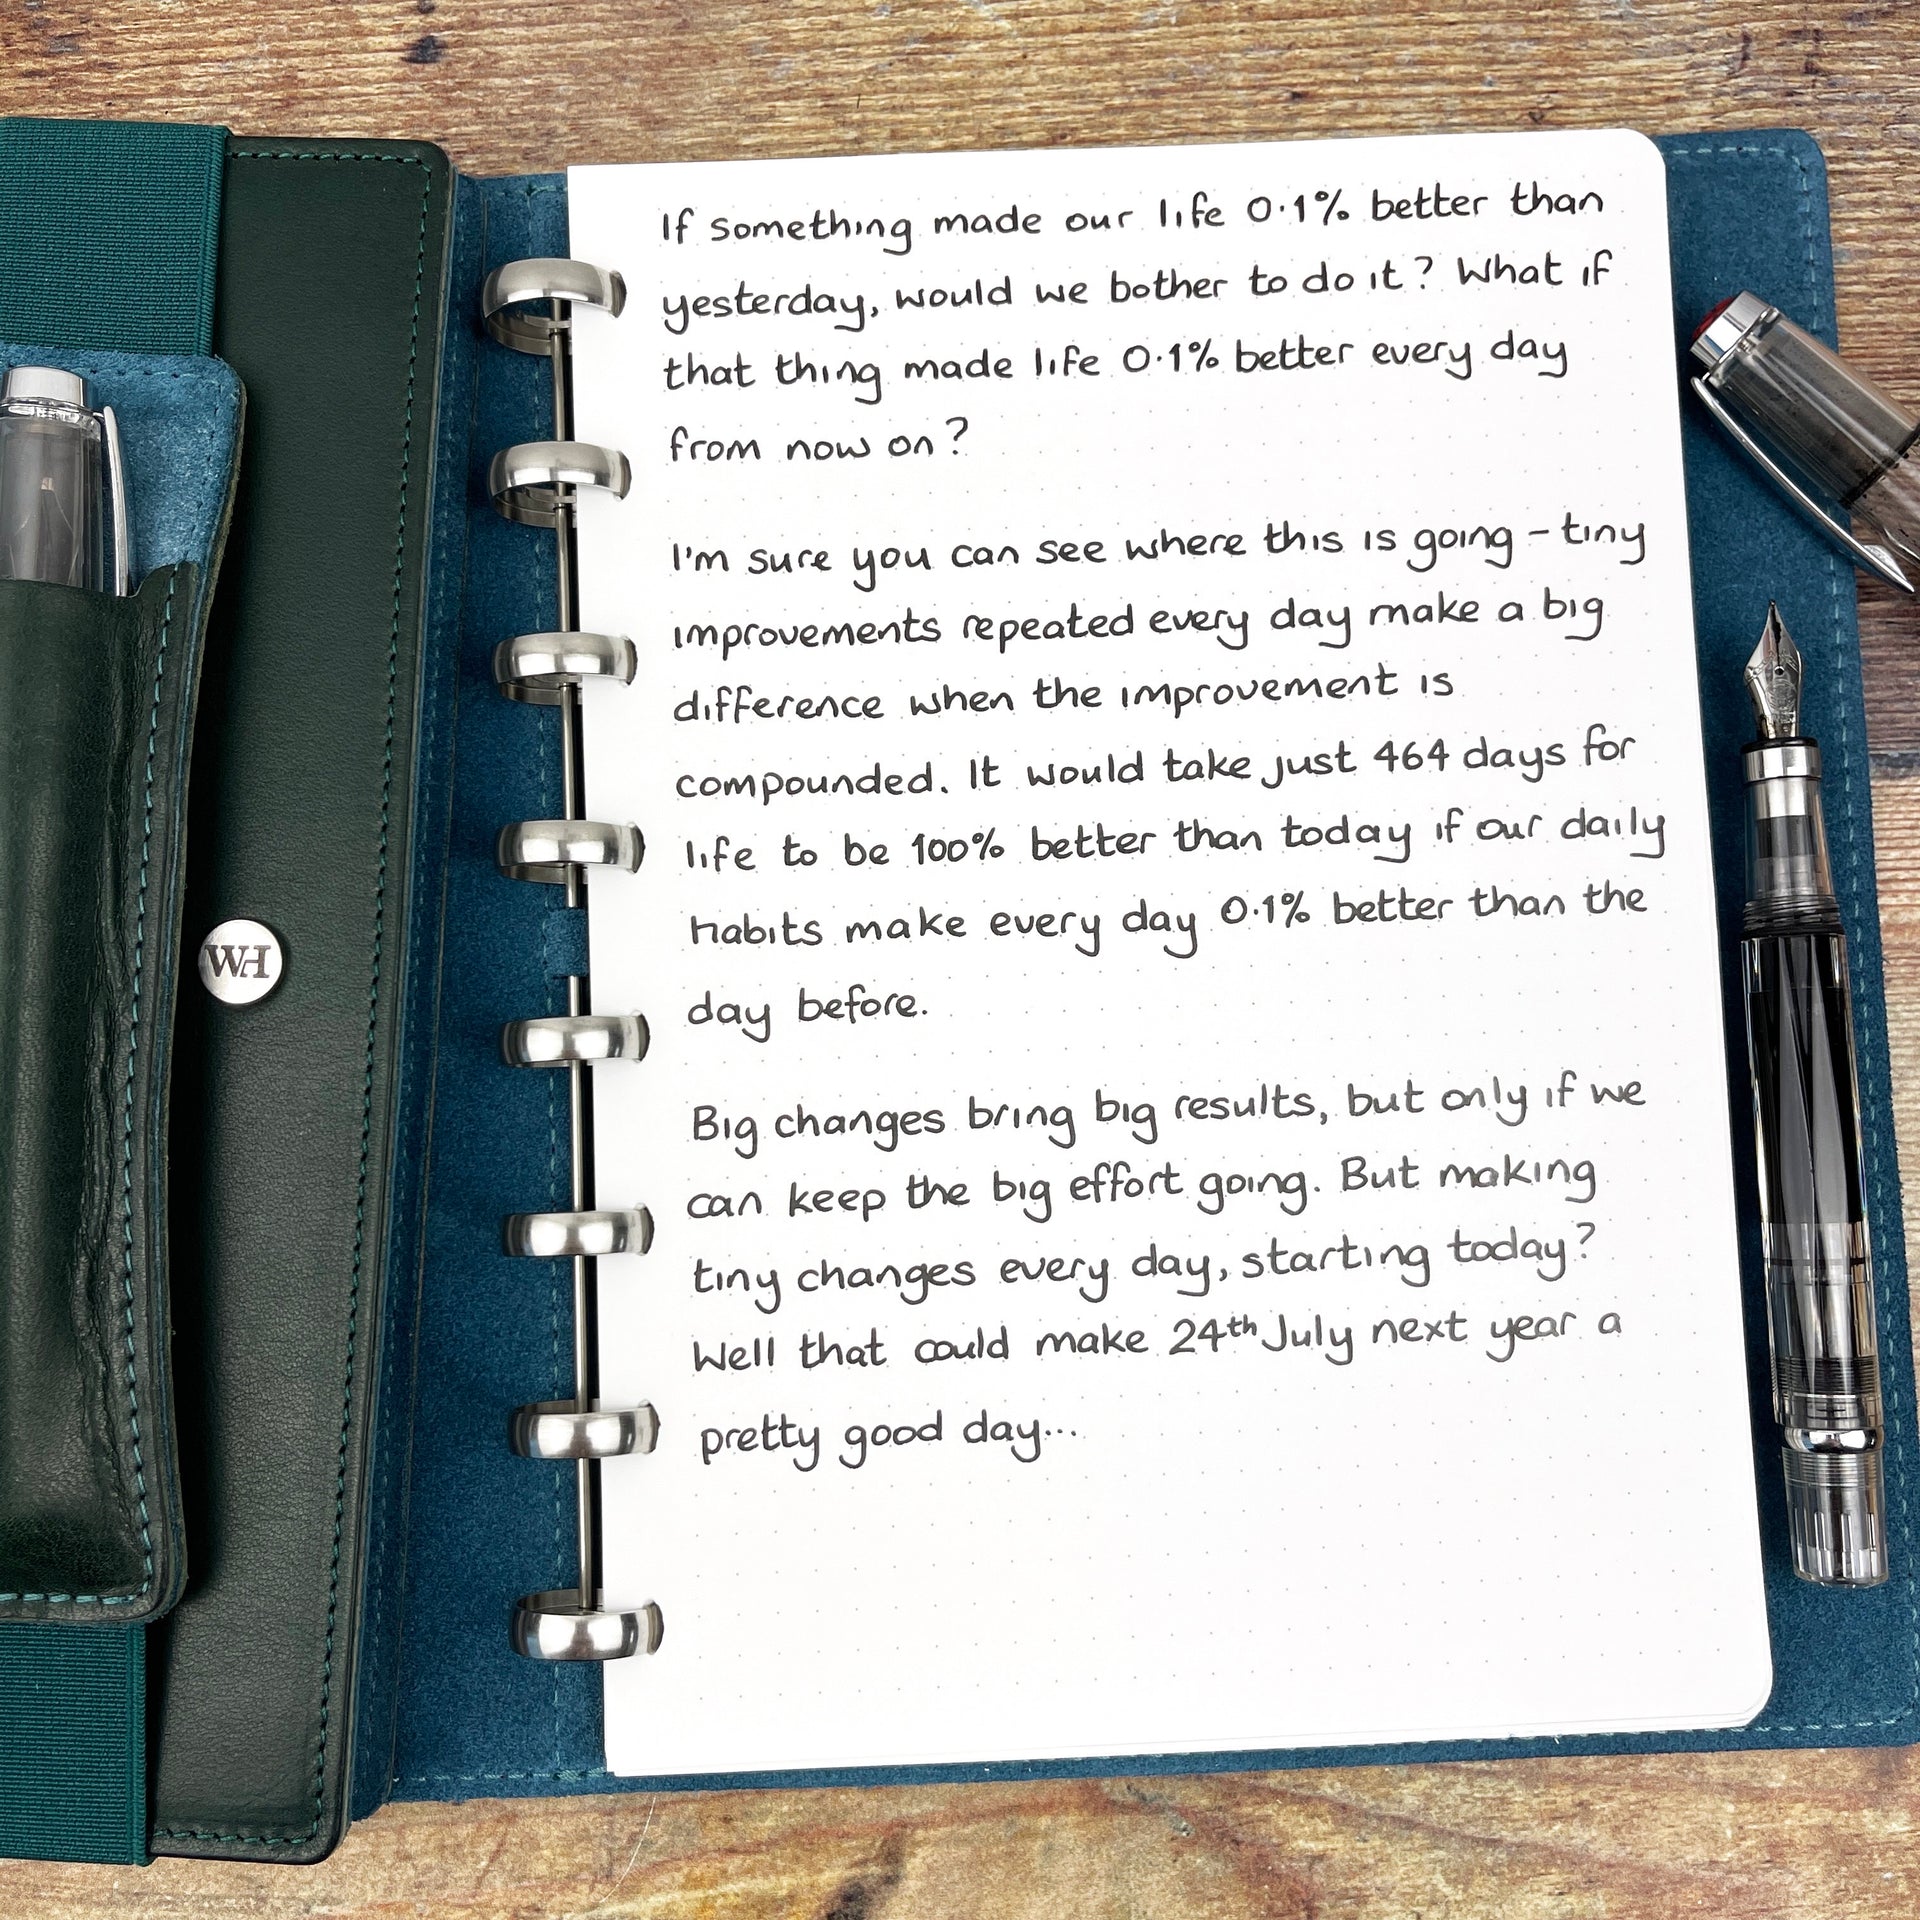 If something made our life 0·1% better than
yesterday, would we bother to do it? What if
that thing made life 0·1% better every day
from now on?
I'm sure you can see where this is going – tiny
improvements repeated every day make a big
difference when the improvement is
compounded. It would take just 464 days for
life to be 100% better than today if our daily
habits make every day 0·1% better than the
day before.
Big changes bring big results, but only if we
can keep the big effort going. But making
tiny changes every day, starting today?
Well that could make 24th July next year a
pretty good day...
WH